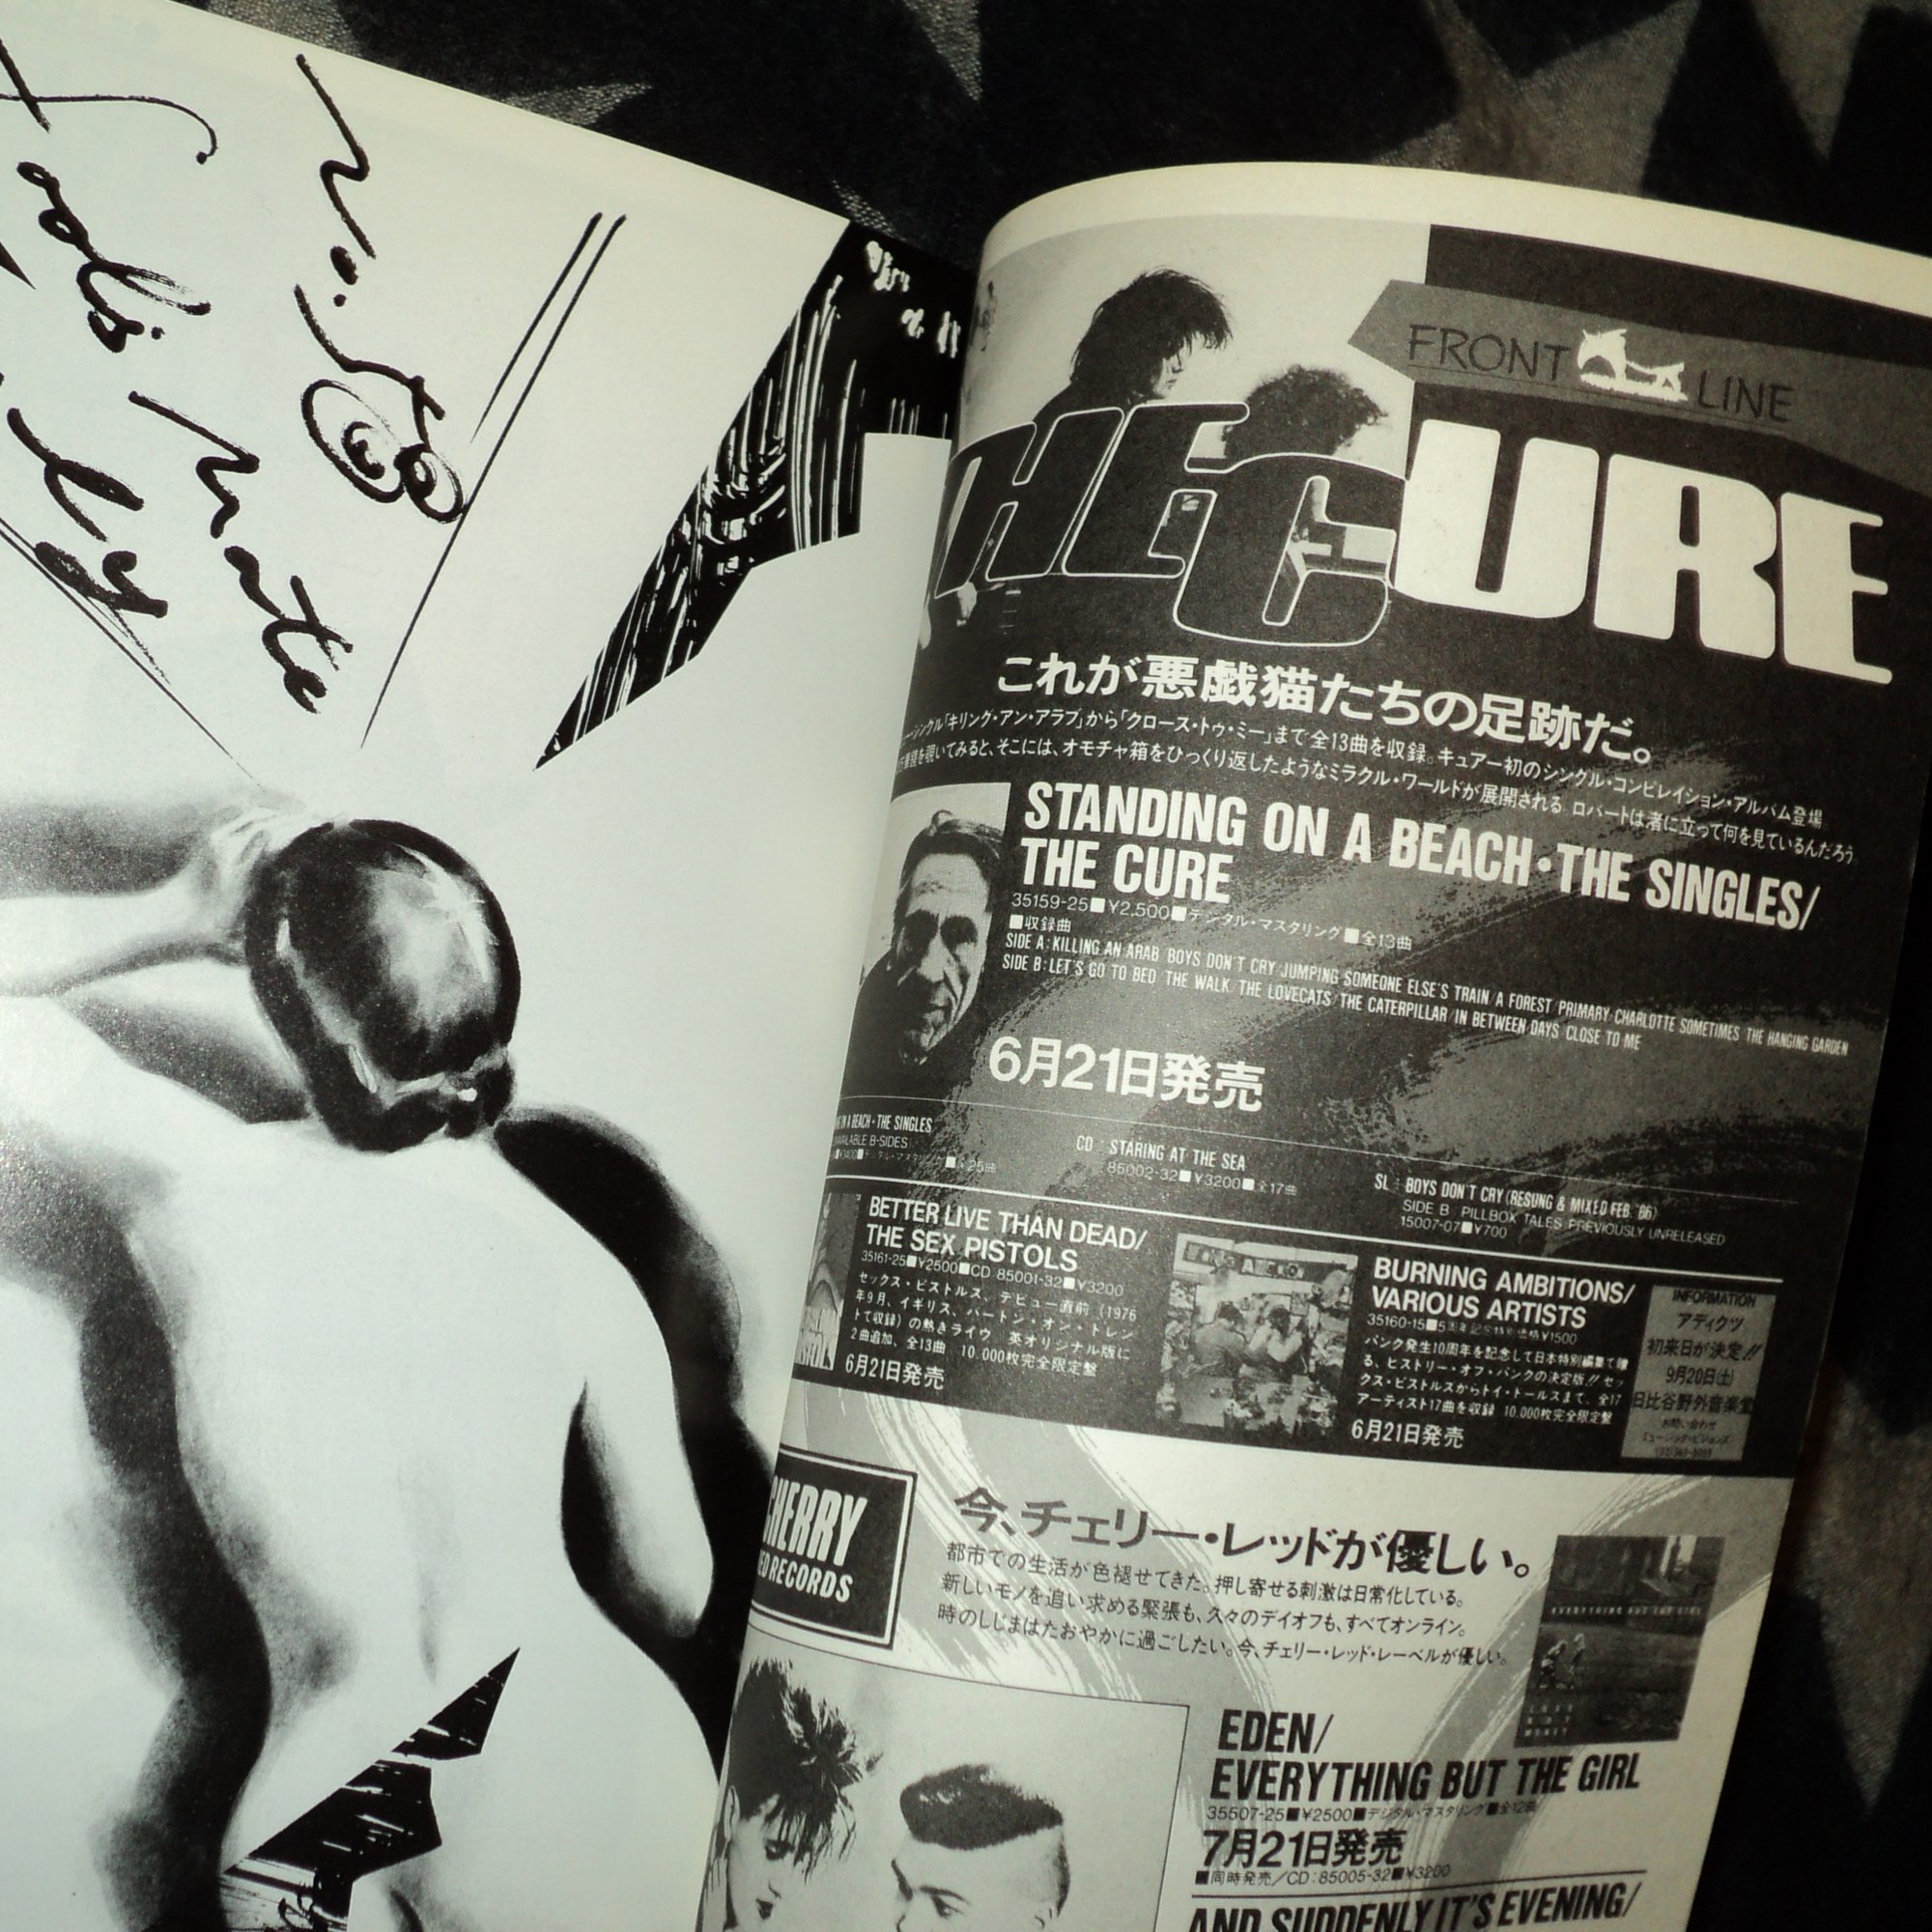 FRONT LINE
THE CURE
これが悪戯猫たちの足跡だ。
「キリング・アン・アラブ」から「クロース・トゥ・ミー」まで全13曲を収録。キュアー初のシングル・コンピレイション・アルバム登場
を覗いてみると、そこには、オモチャ箱をひっくり返したようなミラクル・ワールドが展開される ロバートは渚に立って何を見ているんだろう
STANDING ON A BEACH・THE SINGLES/
THE CURE
35159-25■¥2,500■デジタル・マスタリング■全13曲
■収録曲
SIDE A:KILLING AN ARAB BOYS DON'T CRY JUMPING SOMEONE ELSE'S TRAIN/A FOREST PRIMARY CHARLOTTE SOMETIMES THE HANGING GARDEN
SIDE B:LET'S GO TO BED THE WALK THE LOVECATS THE CATERPILLAR/IN BETWEEN DAYS CLOSE TO ME
6月21日発売
ON A BEACH・THE SINGLES
AVAILABLE B-SIDES
¥3400■デジタル・マスタリング■全25曲
CD : STARING AT THE SEA
85002-32■¥3200■全17曲
SL : BOYS DON'T CRY (RESUNG & MIXED FEB. '86)
SIDE B PILLBOX TALES PREVIOUSLY UNRELEASED
15007-07■¥700
BETTER LIVE THAN DEAD/
THE SEX PISTOLS
35161-25■¥2500■CD 85001-32■¥3200
セックス・ピストルズ、デビュー直前（1976
年9月、イギリス、バートン・オン・トレン
トで収録）の熱きライヴ 英オリジナル版に
2曲追加、全13曲 10.000枚完全限定盤
6月21日発売
BURNING AMBITIONS/
VARIOUS ARTISTS
35160-15■5周年記念特別価格¥1500
パンク発生10周年を記念して日本特別編集で贈
る、ヒストリー・オブ・パンクの決定版!! セッ
クス・ピストルズからトイ・ドールズまで、全17
アーティスト17曲を収録 10.000枚完全限定盤
6月21日発売
INFORMATION
アディクツ
初来日が決定!!
9月20日(土)
日比谷野外音楽堂
お問い合わせ
CHERRY
RED RECORDS
今、チェリー・レッドが優しい。
都市での生活が色褪せてきた。押し寄せる刺激は日常化している。
新しいモノを追い求める緊張も、久々のデイオフも、すべてオンライン。
時のしじまはたおやかに過ごしたい。今、チェリー・レッド・レーベルが優しい。
EVERYTHING BUT THE GIRL
EDEN/
EVERYTHING BUT THE GIRL
35507-25■¥2500■デジタル・マスタリング■全12曲
7月21日発売
■同時発売／CD:85005-32■¥3200
AND SUDDENLY IT'S EVENING/